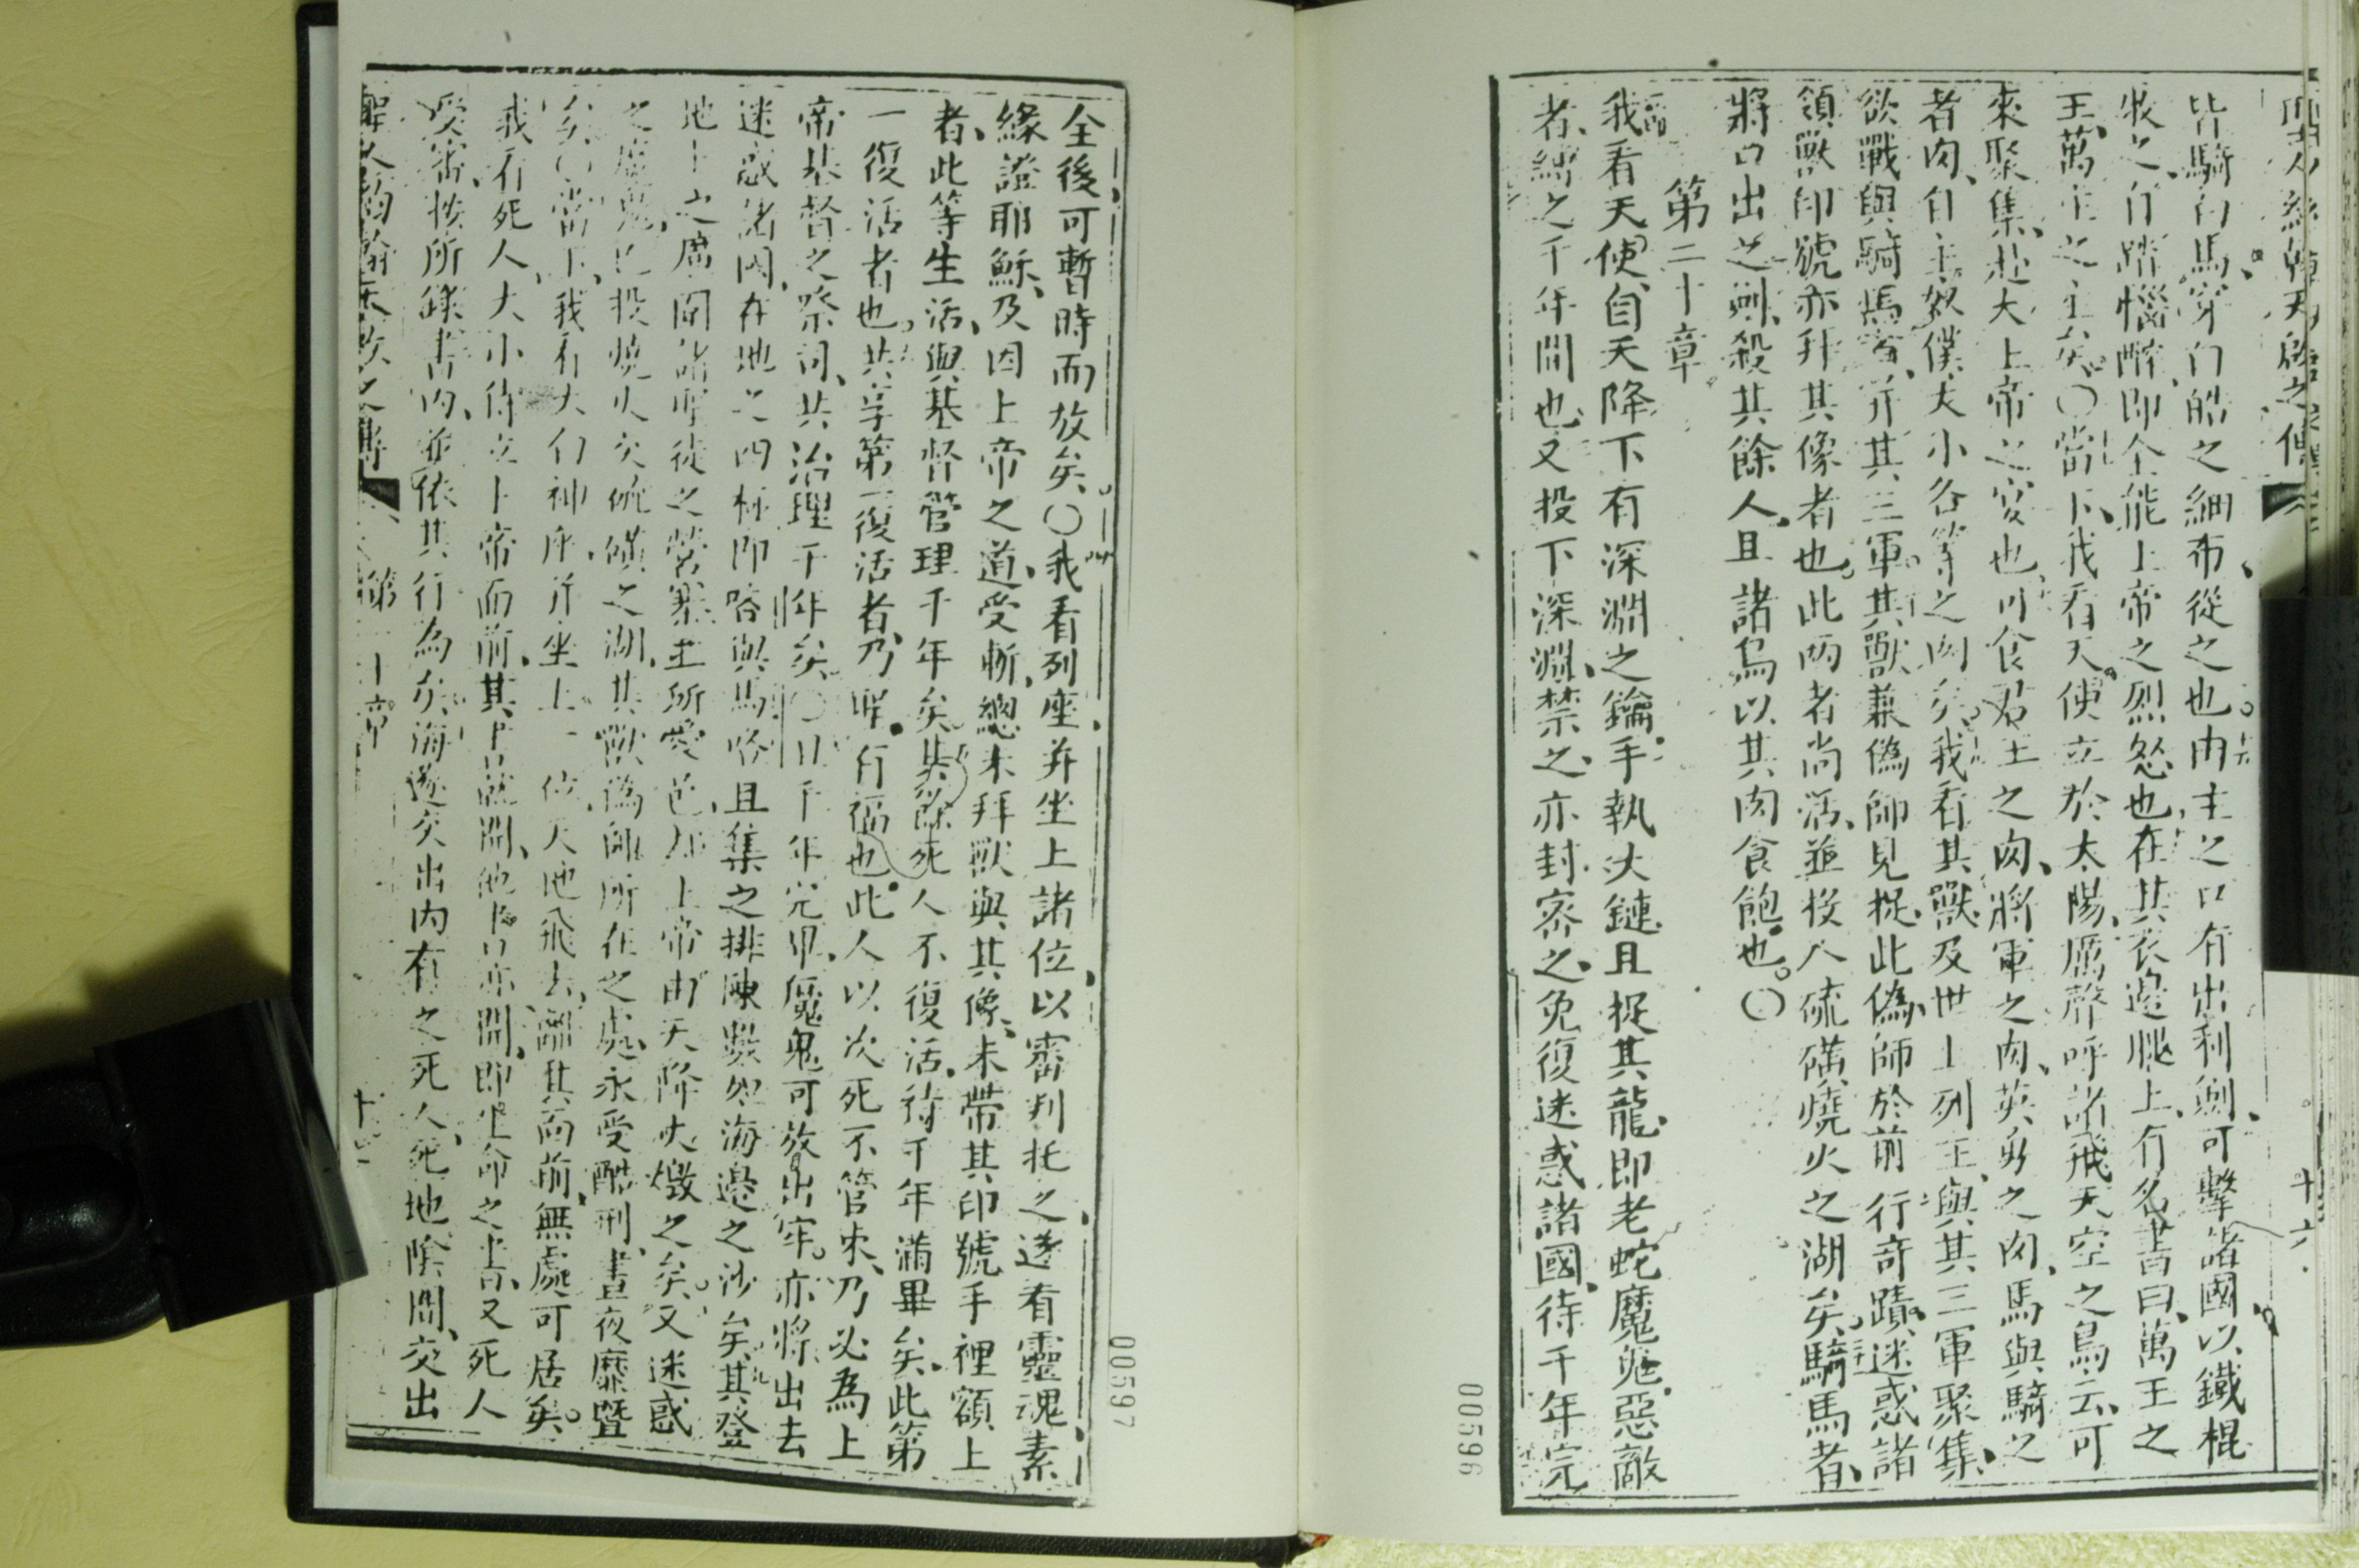 皆騎白馬穿白皓之細布從之也由主之口有出利劍、可擊諸國以鐵棍
牧之、行踏惱醉即全能上帝之烈怒也在其衣邊腿上、有名書曰、萬王之
王、萬主之主矣。〇當下、我看天使立於太陽、厲聲呼諸飛天空之鳥云、可
來聚集、赴大上帝之宴也、可食君王之肉、將軍之肉、英勇之肉、馬與騎之
者肉、自主奴僕大小各等之肉矣。我看其獸及世上列王、與其三軍聚集、
欲戰與騎馬者、并其三軍。其獸兼偽師見捉、此偽師於前行奇蹟、迷惑諸
領獸印號亦拜其像者也。此兩者尚活、並投入硫磺燒火之湖矣。騎馬者、
將口出之劍、殺其餘人、且諸鳥以其肉食飽也。〇
第二十章
我看天使、自天降下有深淵之鑰、手執大鏈、且捉其龍、即老蛇魔鬼惡敵
者、縛之千年間也、又投下深淵、禁之、亦封密之、免復迷惑諸國、待千年完
00596
全後可暫時而放矣。〇我看列座、并坐上諸位、以審判托之、遂看靈魂素
緣證耶穌、及因上帝之道、受斬、總未拜獸與其像、未帶其印號手裡額上
者、此等生活、與基督管理千年矣。其餘死人不復活、待千年滿畢矣、此第
一復活者也。共享第一復活者、乃聖有福也。此人以次死不管束、乃必為上
帝基督之祭司、共治理千年矣。〇且千年完畢、魔鬼可放出牢。亦將出去
迷惑諸國、在地之四極、即咯與馬咯且集之排陳、數如海邊之沙矣。其登
地上之廣闊諸聖徒之營寨、並所愛邑、但上帝由天降火燬之矣。又迷惑
之魔鬼、已投燒火交硫磺之湖、其獸偽師所在之處、永受酷刑、晝夜靡暨
矣。〇當下、我看大白神座、并坐上一位、天地飛去、離其面前、無處可居矣。
我看死人、大小侍立上帝面前、其書就開、他書亦開、即生命之書、又死人
受審、按所錄書內、並依其行為矣。海遂交出內有之死人、死地陰間、交出
00597